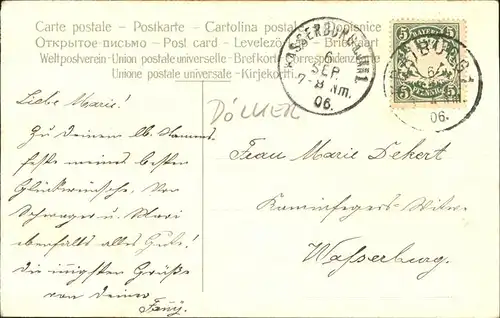 Carte postale – Postkarte – Cartolina postale –
Открытое письмо – Post card – Levelező
Weltpostverein – Union postale universelle – Brefkort – Correspondenzkarte
Unione postale universale – Kirjekortti
WASSERBURG
6
SEP.
7-8 Nm.
06.
BAYERN
5 5
PFENNIG
06.
DÖLLER
Liebe Marie!
Zu Deinem lb. Namens-
feste meines besten
Glückwünsche. Von
Schwager u. Mari
ebenfalls alles Gute!
Die innigsten Grüße
von deiner
Fany.
Frau Marie Dekert
Kaminfegers-Witwe
Wasserburg.